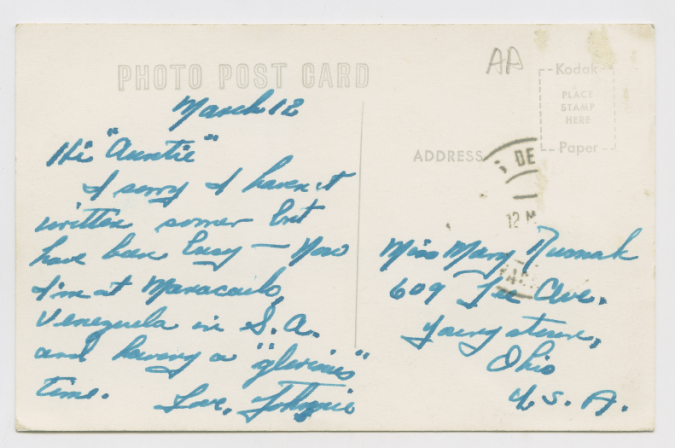 PHOTO POST CARD
AA
Kodak
PLACE
STAMP
HERE
Paper
ADDRESS
DE
12 M
March 12
Hi "Auntie"
I sorry I haven't
written sooner but
have been busy — Now
I'm at Maracaibo,
Venezuela in S.A.
and having a "glorious"
time.
Love, Johnnie
Miss Mary Rusnak
609 Lee Ave.
Youngstown,
Ohio
U.S.A.